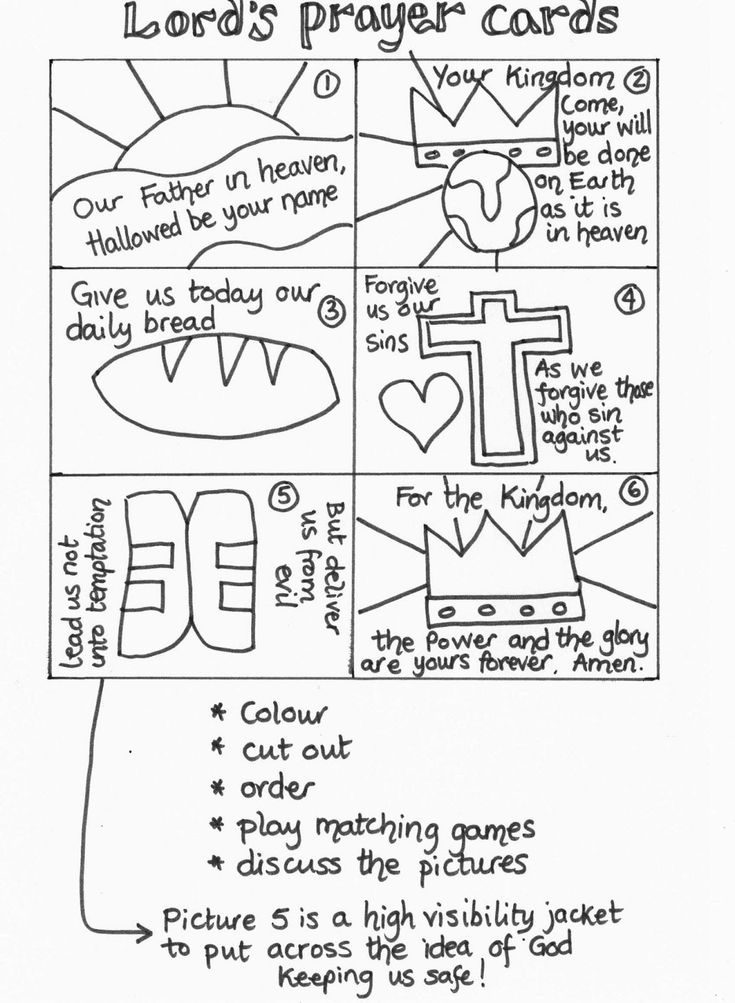 Lord's prayer cards
1
Our Father in heaven,
Hallowed be your name
Your Kingdom 2
Come,
your will
be done
on Earth
as it is
in heaven
Give us today our
daily bread
3
Forgive
us our
sins
4
As we
forgive those
who sin
against
us.
5
lead us not
into temptation
But deliver
us from
evil
For the Kingdom, 6
the Power and the glory
are yours forever. Amen.
* Colour
* cut out
* order
* play matching games
* discuss the pictures
Picture 5 is a high visibility jacket
to put across the idea of God
keeping us safe!